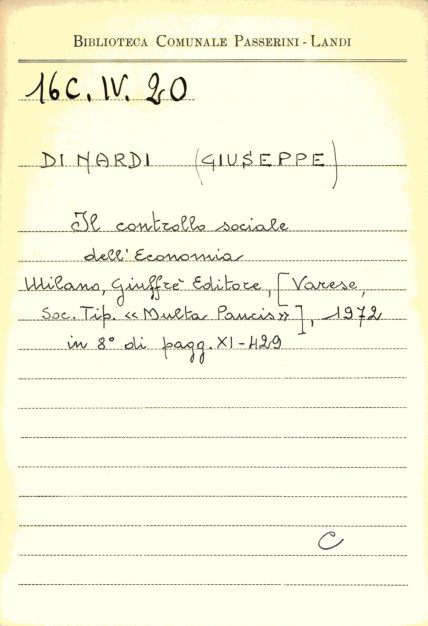 BIBLIOTECA COMUNALE PASSERINI - LANDI
16C. IV. 20
DI NARDI (GIUSEPPE)
Il controllo sociale
dell'Economia
Milano, Giuffrè Editore, [Varese,
Soc. Tip. «Multa Paucis»], 1972
in 8° di pagg. XI-429
C